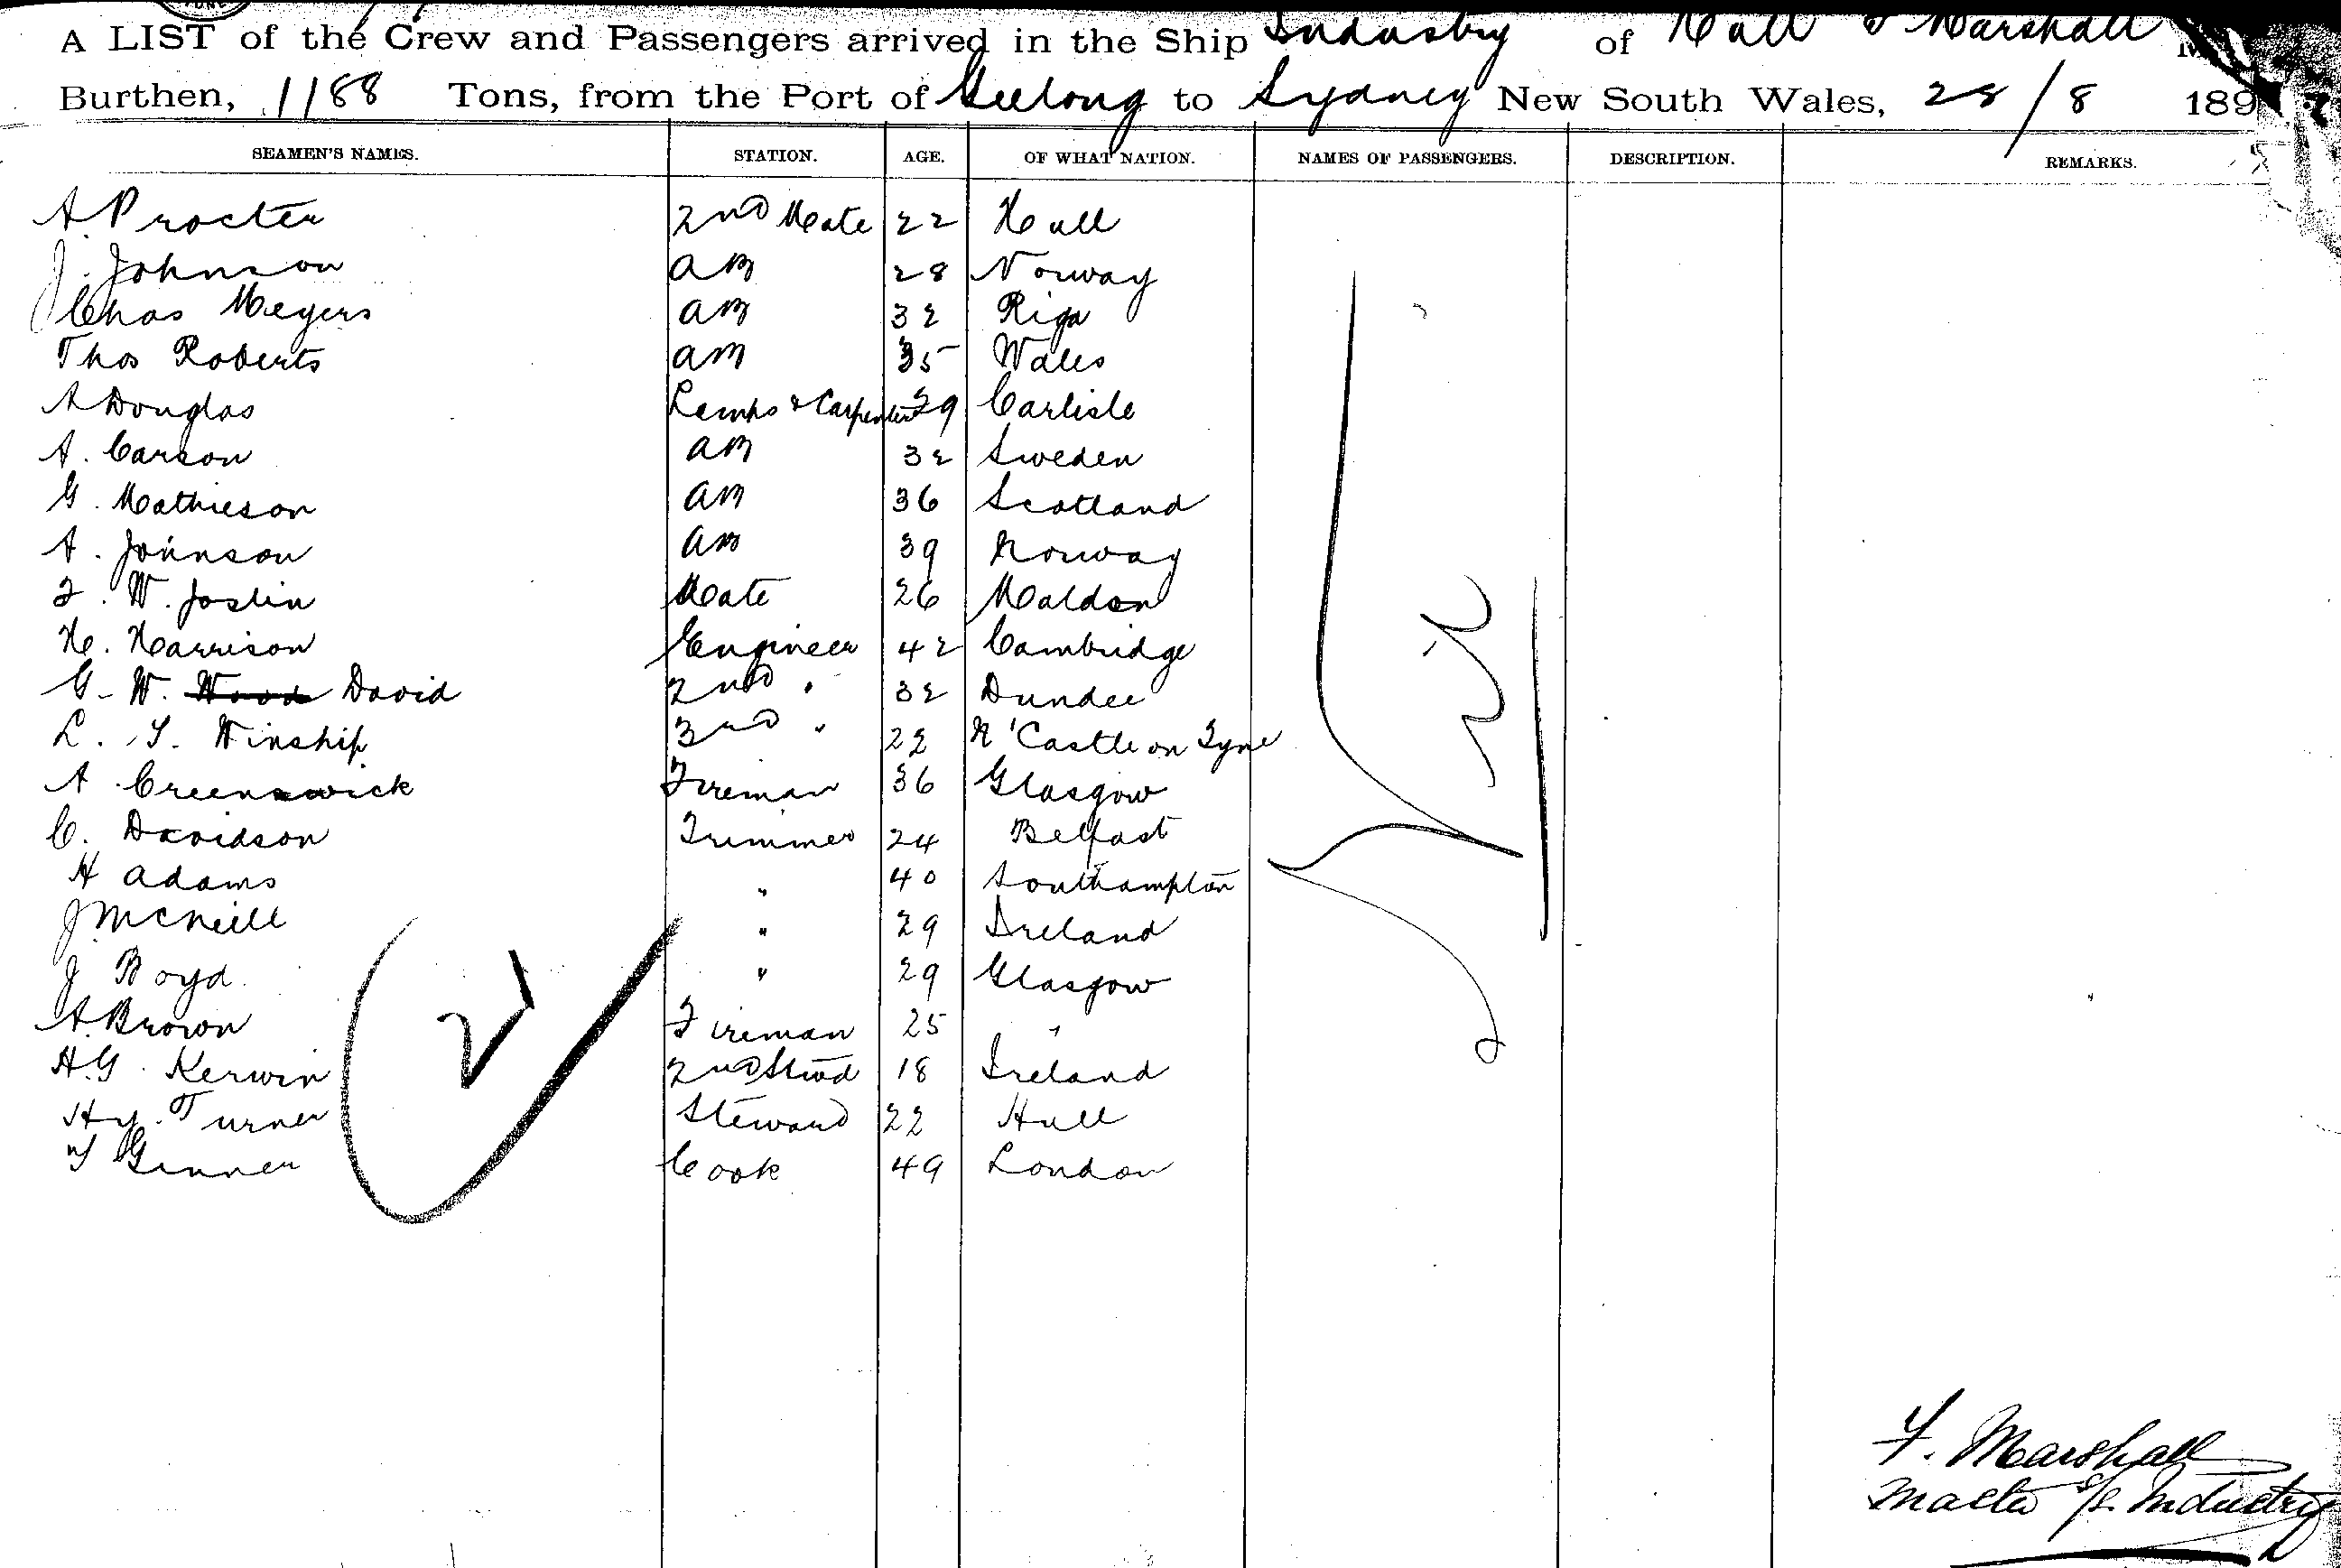 A LIST of the Crew and Passengers arrived in the Ship Industry of Hull F Marshall
Burthen, 1188 Tons, from the Port of Geelong to Sydney New South Wales, 28/8 189
SEAMEN'S NAMES. STATION. AGE. OF WHAT NATION. NAMES OF PASSENGERS. DESCRIPTION. REMARKS.
A. Procter 2nd Mate 22 Hull
J. Johnson AB 28 Norway
Chas Meyers AB 32 Riga
Thos Roberts AB 35 Wales
A Douglas Lamps & Carpenter 29 Carlisle
A. Carson AB 32 Sweden
G. Mathieson AB 36 Scotland
A. Johnson AB 39 Norway
F. W. Joslin Mate 26 Maldon
H. Harrison Engineer 42 Cambridge
G. W. Wood David 2nd " 32 Dundee
L. S. Winship 3rd " 22 N'Castle on Tyne
A Creenswick Fireman 36 Glasgow
C. Davidson Trimmer 24 Belfast
H Adams " 40 Southampton
J. McNeill " 29 Ireland
J Boyd " 29 Glasgow
A. Brown Fireman 25 "
H.G. Kerwin 2nd Stwd 18 Ireland
Hy. Turner Steward 22 Hull
T Genner Cook 49 London
21
Nil
F. Marshall
Master S/S. Industry